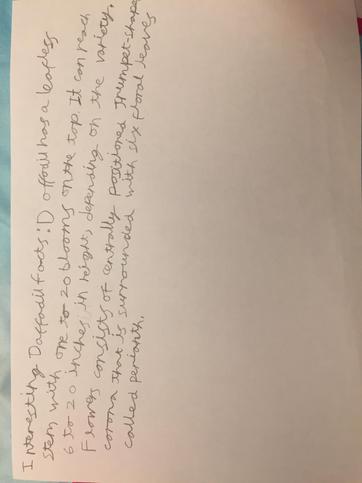 Interesting Daffodil facts: Daffodil has a leafless
stem with one to 20 blooms on the top. It can reach
6 to 20 inches in height, depending on the variety.
Flower consists of centrally positioned trumpet-shape
corona that is surrounded with six floral leaves
called perianth.